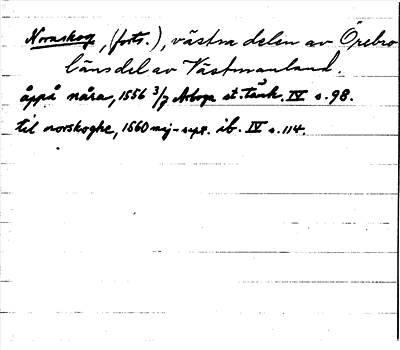 Noraskog, (forts.), västra delen av Örebro
länsdel av Västmanland.
åppå nåra, 1556 3/7 Arboga st. tänk. IV s. 98.
til norskoghe, 1560 maj-sept. ib. IV s. 114.